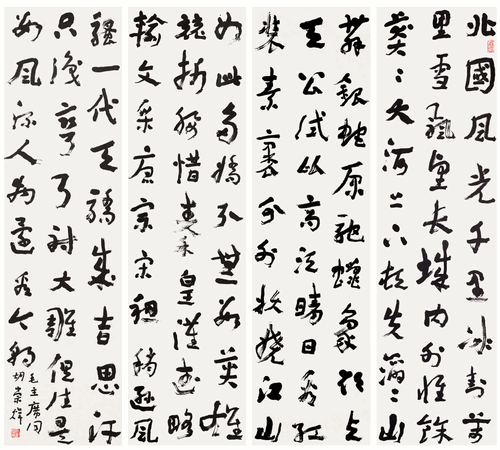 北國風光千里冰封萬
里雪飄望长城内外惟餘
莽々大河上下頓失滔々山
舞銀蛇原馳蠟象欲与
天公試比高須晴日看红
裝素裹分外妖嬈江山
如此多嬌引無數英雄
競折腰惜秦皇漢武略
輸文采唐宗宋祖稍遜風
騷一代天驕成吉思汗
只識彎弓射大雕俱往矣
數風流人物還看今朝
毛主席词
胡崇煒